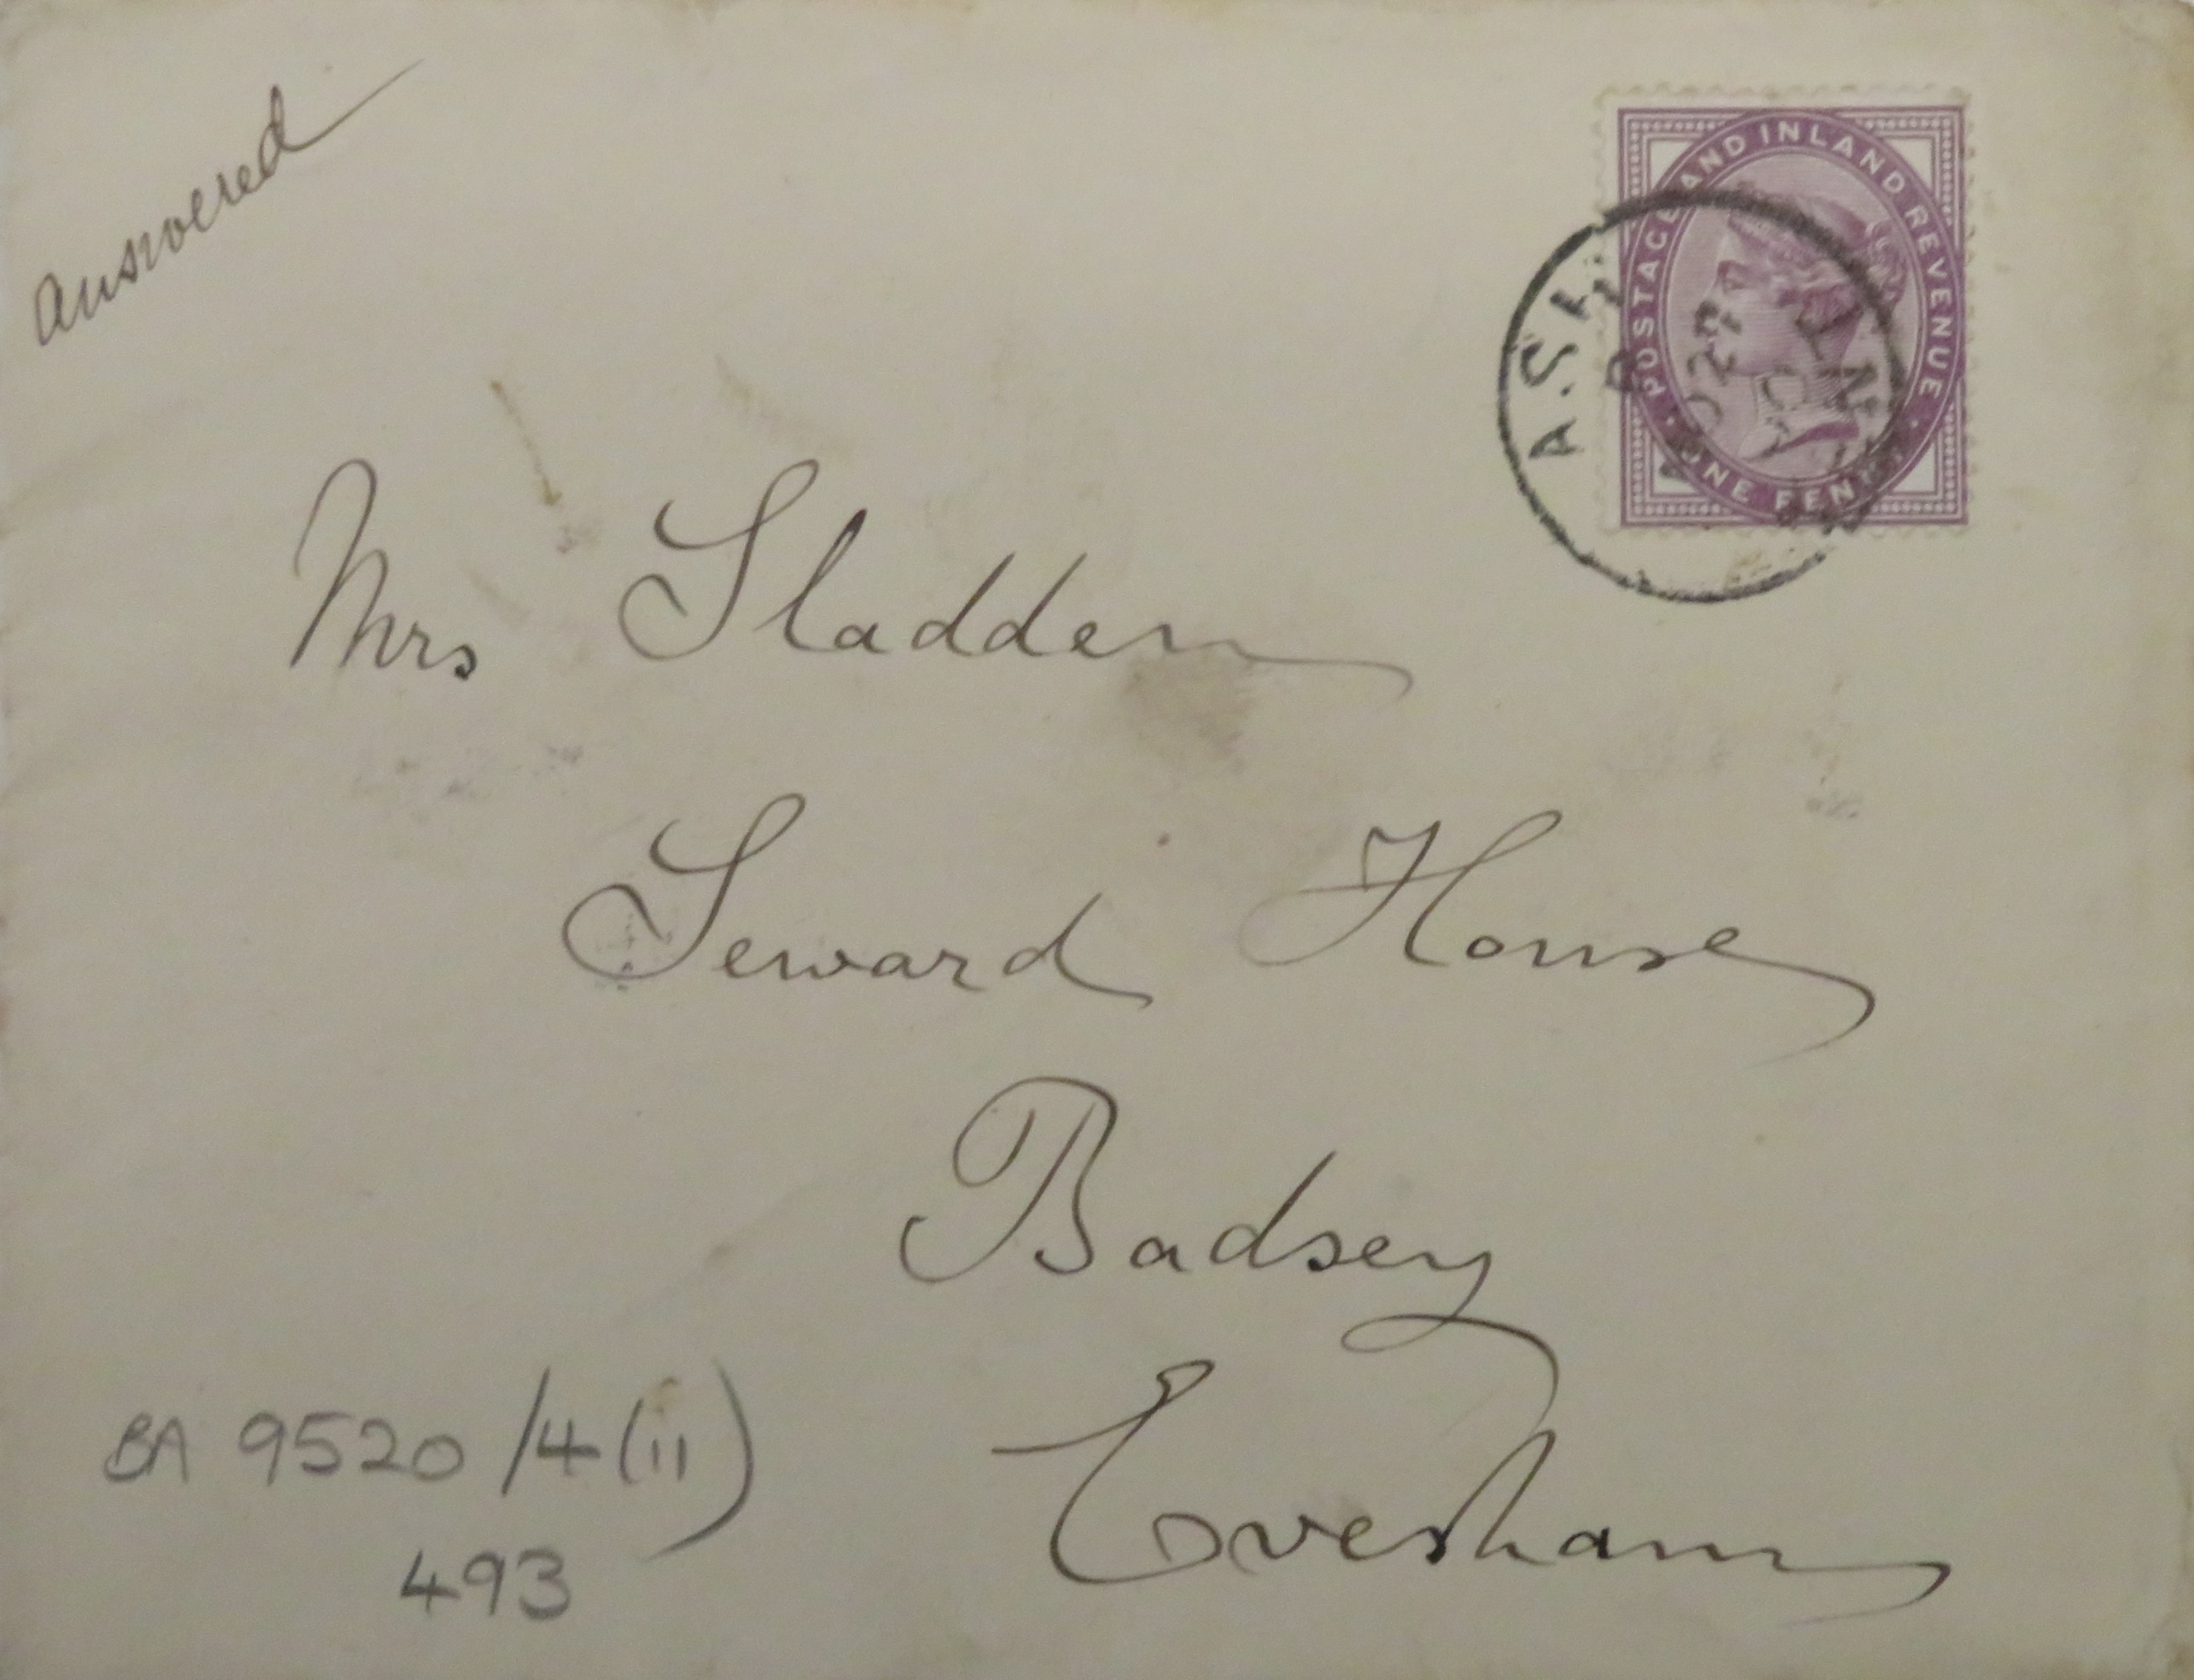 answered
POSTAGE AND INLAND REVENUE
ONE PENNY
Mrs Sladden
Seward House
Badsey
Evesham
BA 9520/4(ii)
493